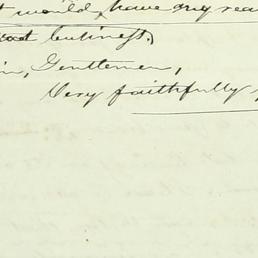 would, have any rea
that business.)
in, Gentlemen,
Very faithfully